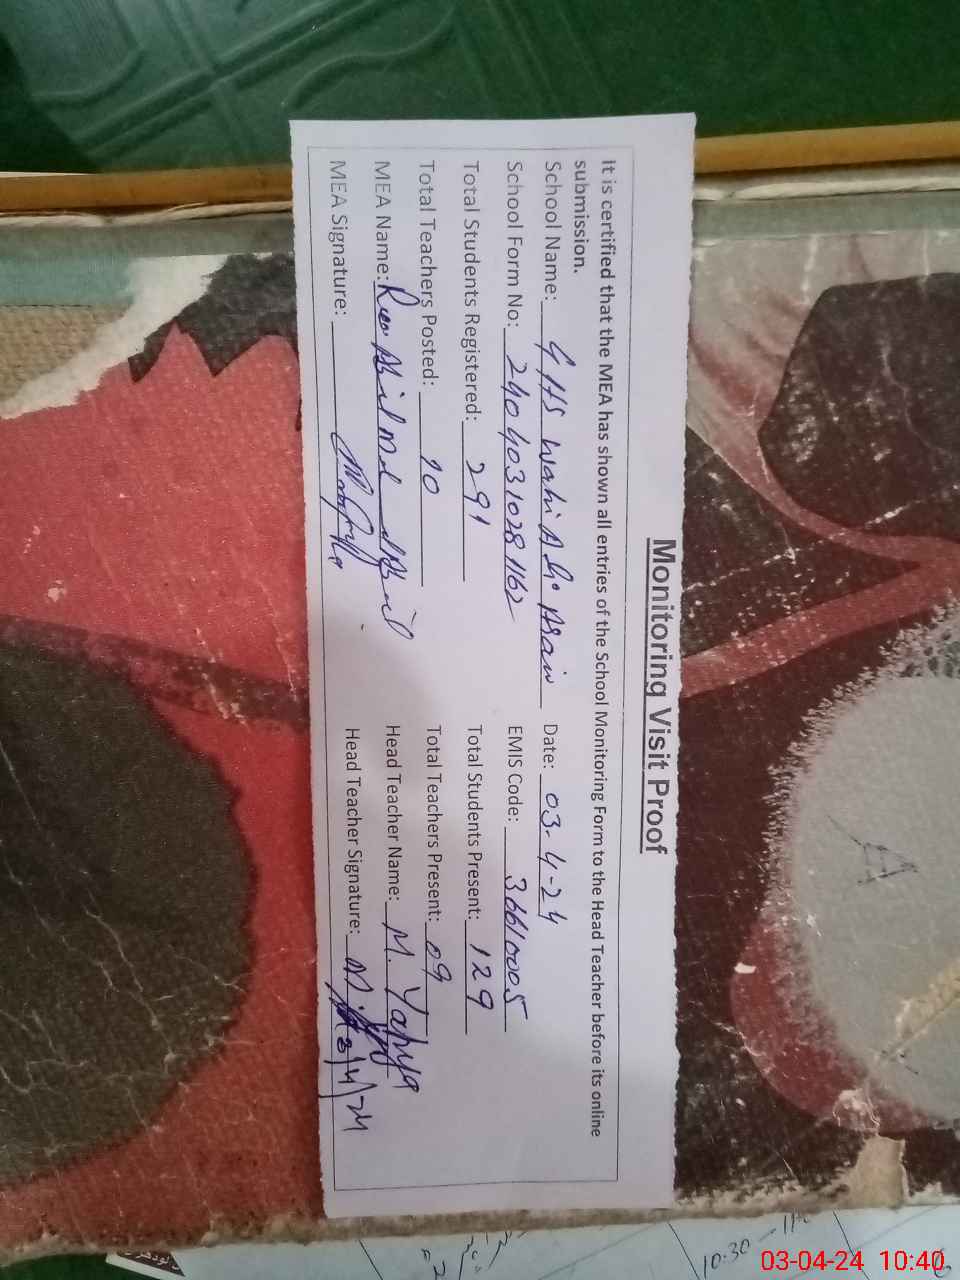 Monitoring Visit Proof
It is certified that the MEA has shown all entries of the School Monitoring Form to the Head Teacher before its online
submission.
School Name: GHS Wahi Ali Arain Date: 03-4-24
School Form No: 24040310281162 EMIS Code: 36610005
Total Students Registered: 291 Total Students Present: 129
Total Teachers Posted: 10 Total Teachers Present: 09
MEA Name: Head Teacher Name: M. Yahya
MEA Signature: Head Teacher Signature: 3/4/24
A
10:30
03-04-24 10:40